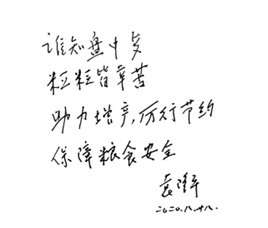 谁知盘中歺
粒粒皆辛苦
助力增产,厉行节约
保障粮食安全
袁隆平
二〇二〇.八.十八.